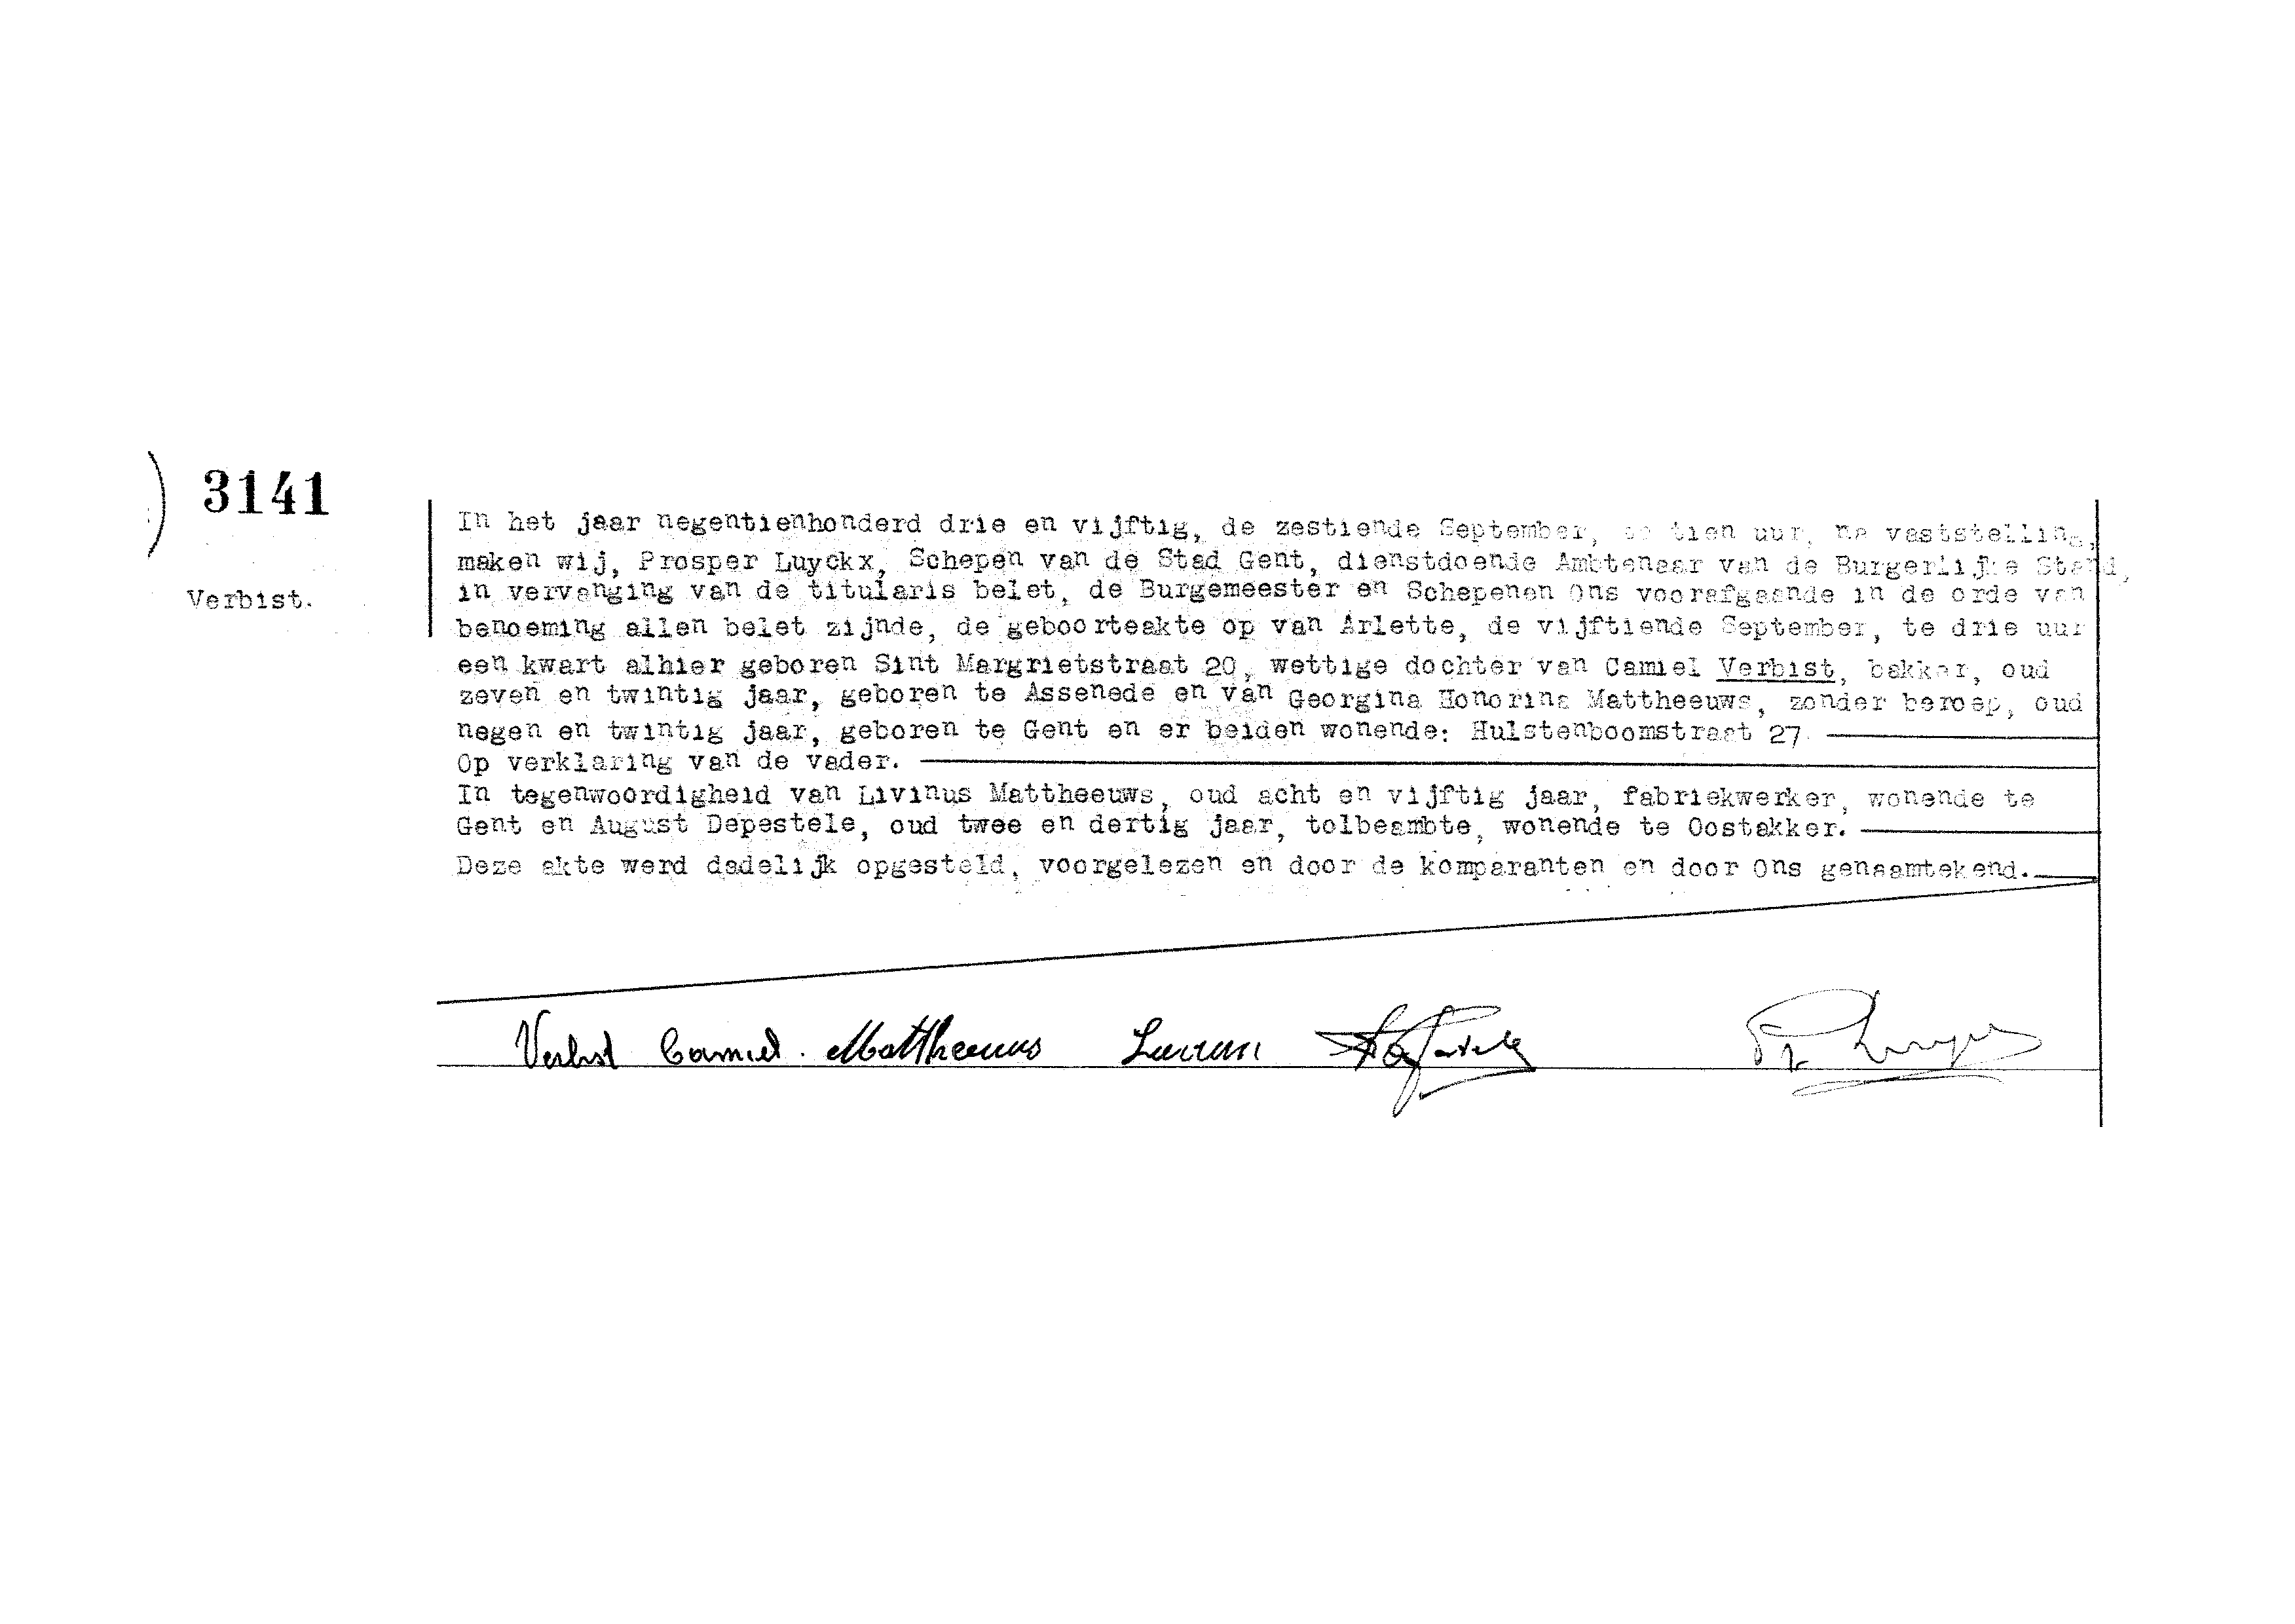 3141
Verbist.
In het jaar negentienhonderd drie en vijftig, de zestiende September, te tien uur, na vaststelling,
maken wij, Prosper Luyckx, Schepen van de Stad Gent, dienstdoende Ambtenaar van de Burgerlijke Stand,
in vervanging van de titularis belet, de Burgemeester en Schepenen Ons voorafgaande in de orde van
benoeming allen belet zijnde, de geboorteakte op van Arlette, de vijftiende September, te drie uur
een kwart alhier geboren Sint Margrietstraat 20, wettige dochter van Camiel Verbist, bakker, oud
zeven en twintig jaar, geboren te Assenede en van Georgina Honorina Mattheeuws, zonder beroep, oud
negen en twintig jaar, geboren te Gent en er beiden wonende: Hulstenboomstraat 27.
Op verklaring van de vader.
In tegenwoordigheid van Livinus Mattheeuws, oud acht en vijftig jaar, fabriekwerker, wonende te
Gent en August Depestele, oud twee en dertig jaar, tolbeambte, wonende te Oostakker.
Deze akte werd dadelijk opgesteld, voorgelezen en door de komparanten en door Ons genaamtekend.
Verbist Camiel. Mattheeuws